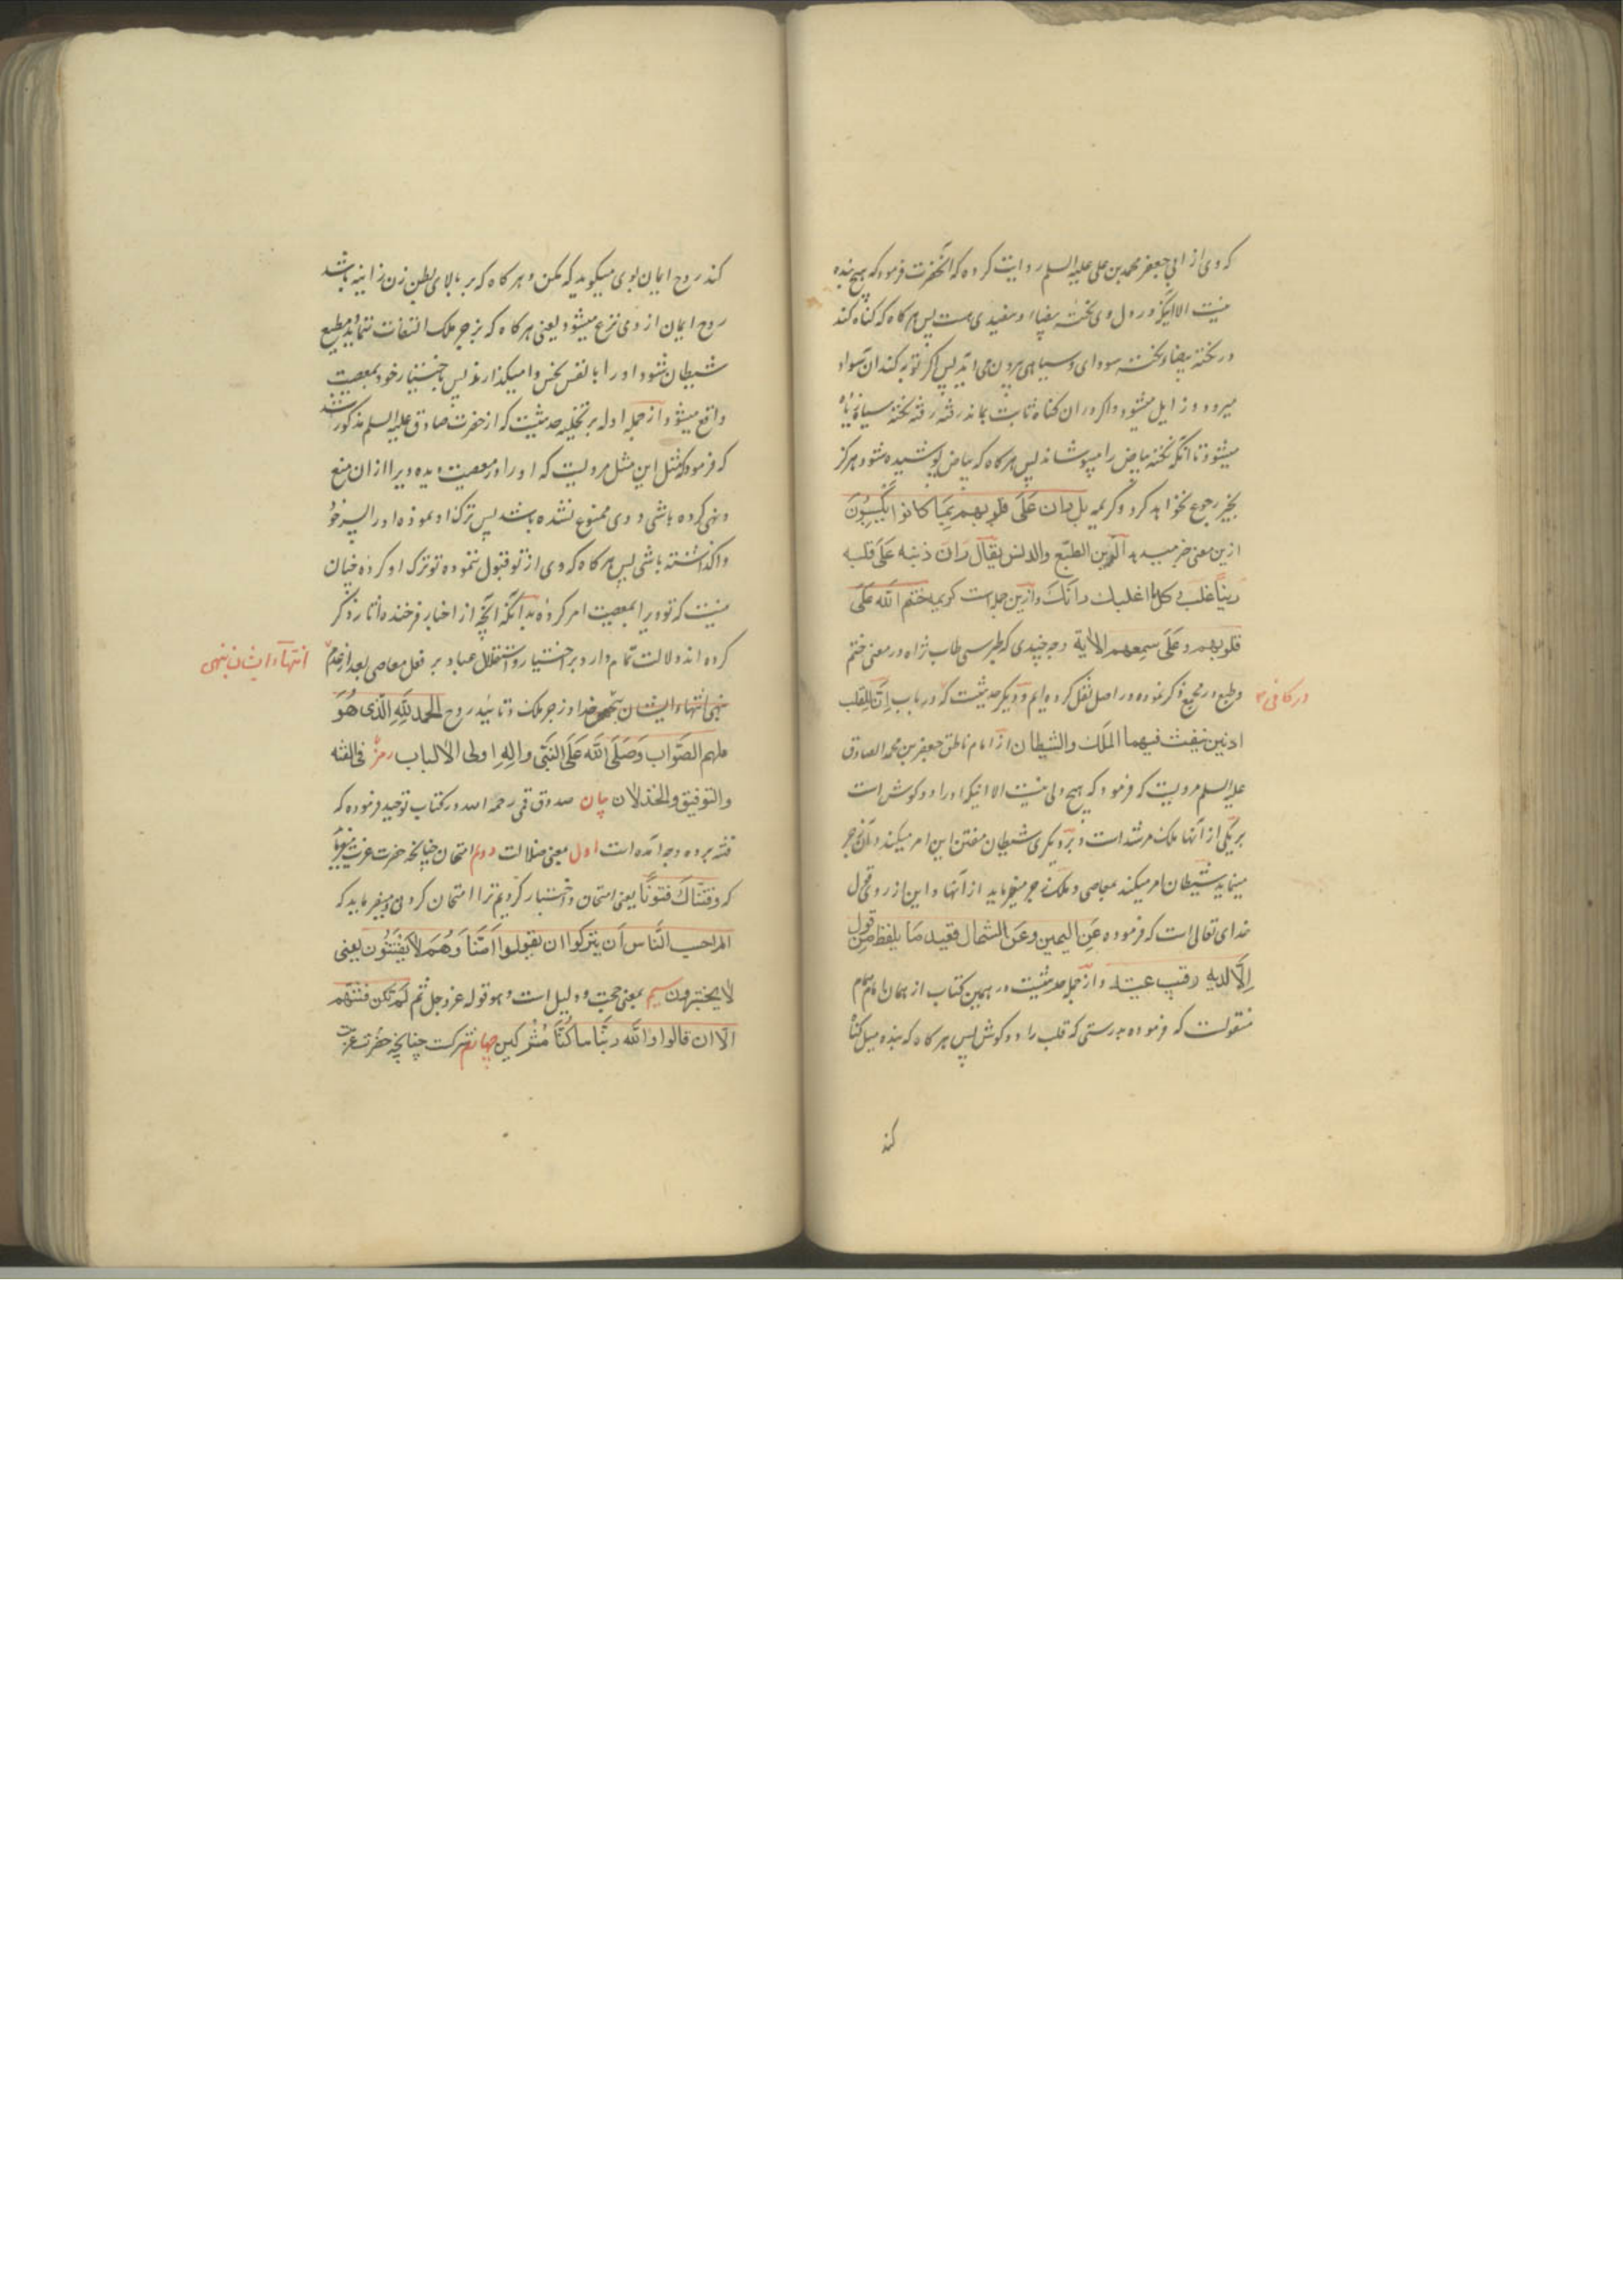 که وی از ابی جعفر محمد بن علی علیه السلم روایت کرده که آنحضرت فرمود که هیچ بنده
نیست الا اینکه در دل وی نکتهٔ بیضاء و سفیدی هست پس هرگاه که گناه کند
در نکته بیضاء نکته سودای و سیاهی بیرون می آید پس اگر توبه کند آن سواد
میرود و زایل میشود و اگر در آن گناه ثابت بماند رفته رفته نکته سیاه زیاده
میشود تا آنکه نکته بیاض را میپوشاند پس هرگاه که بیاض پوشیده شود هرگز
بخیر رجوع نخواهد کرد و کریمه بل ران علی قلوبهم بما کانوا یکسبون
ازین معنی خبر میدهد الرین الطبع والدنس یقال ران ذنبه علی قلبه
رینا غلب و کلما غلبک رانک و ازین جمله است کریمه ختم الله علی
قلوبهم و علی سمعهم الایة و وجه چندی که طبرسی طاب ثراه در معنی ختم
و طبع در مجمع ذکر نموده در اصل نقل کرده ایم و دیگر حدیثیست که در باب ان للقلب
در کافی
اذنین ینفث فیهما الملک والشیطان از امام ناطق جعفر بن محمد الصادق
علیه السلم مرویست که فرمود که هیچ دلی نیست الا اینکه او را دو گوش است
بر یکی از آنها ملک مرشد است و بر دیگری شیطان مفتن این امر میکند و آن زجر
مینماید شیطان امر میکند بمعاصی و ملک زجر میفرماید از آنها و این از روی قول
خدای تعالی است که فرموده عن الیمین و عن الشمال قعید ما یلفظ من قول
الا لدیه رقیب عتید و از جمله حدیثیست در همین کتاب از همان امام همام
منقولست که فرموده بدرستی که قلب را دو گوش پس هرگاه که بنده میل گناه
کند
کند روح ایمان بوی میگوید که مکن و هرگاه که بر بالای بطن زن زانیه باشد
روح ایمان از وی نزع میشود یعنی هرگاه که بزجر ملک التفات ننماید و مطیع
شیطان شود او را با نفس نحس وا میگذارند پس باختیار خود بمعصیت
واقع میشود و از جمله ادله بر تخلیه حدیثیست که از حضرت صادق علیه السلم مذکور شد
که فرموده مثل این مثل مردیست که او را در معصیت دیده ویرا از آن منع
و نهی کرده باشی و وی ممنوع نشده باشد پس ترک او نموده او را بسر خود
واگذاشته باشی پس هرگاه که وی از تو قبول ننموده تو ترک او کرده چنان
نیست که تو ویرا بمعصیت امر کرده بدانکه آنچه از اخبار فرخنده آثار ذکر
کرده اند دلالت تمام دارد بر اختیار و استقلال عباد بر فعل معاصی بعد از عدم
انتهاء ایشان بنهی
نهی انتهاء ایشان خدا و زجر ملک و تائید روح الحمد لله الذی هو
ملهم الصواب وصلی الله علی النبی واله اولی الالباب رمز فی الفتنه
والتوفیق والخذلان بیان صدوق قمی رحمه الله در کتاب توحید فرموده که
فتنه بر ده وجه آمده است اول بمعنی ضلالت دوم امتحان چنانچه حضرت عزت میفرماید
که وفتناک فتونا یعنی امتحان و اختبار کردیم ترا امتحان کردنی و میفرماید که
الم احسب الناس ان یترکوا ان یقولوا امنا وهم لا یفتنون یعنی
لا یختبرون سیم بمعنی حجت و دلیل است و هو قوله عز و جل ثم لم تکن فتنتهم
الا ان قالوا والله ربنا ما کنا مشرکین چهارم شرکت چنانچه حضرت عزت